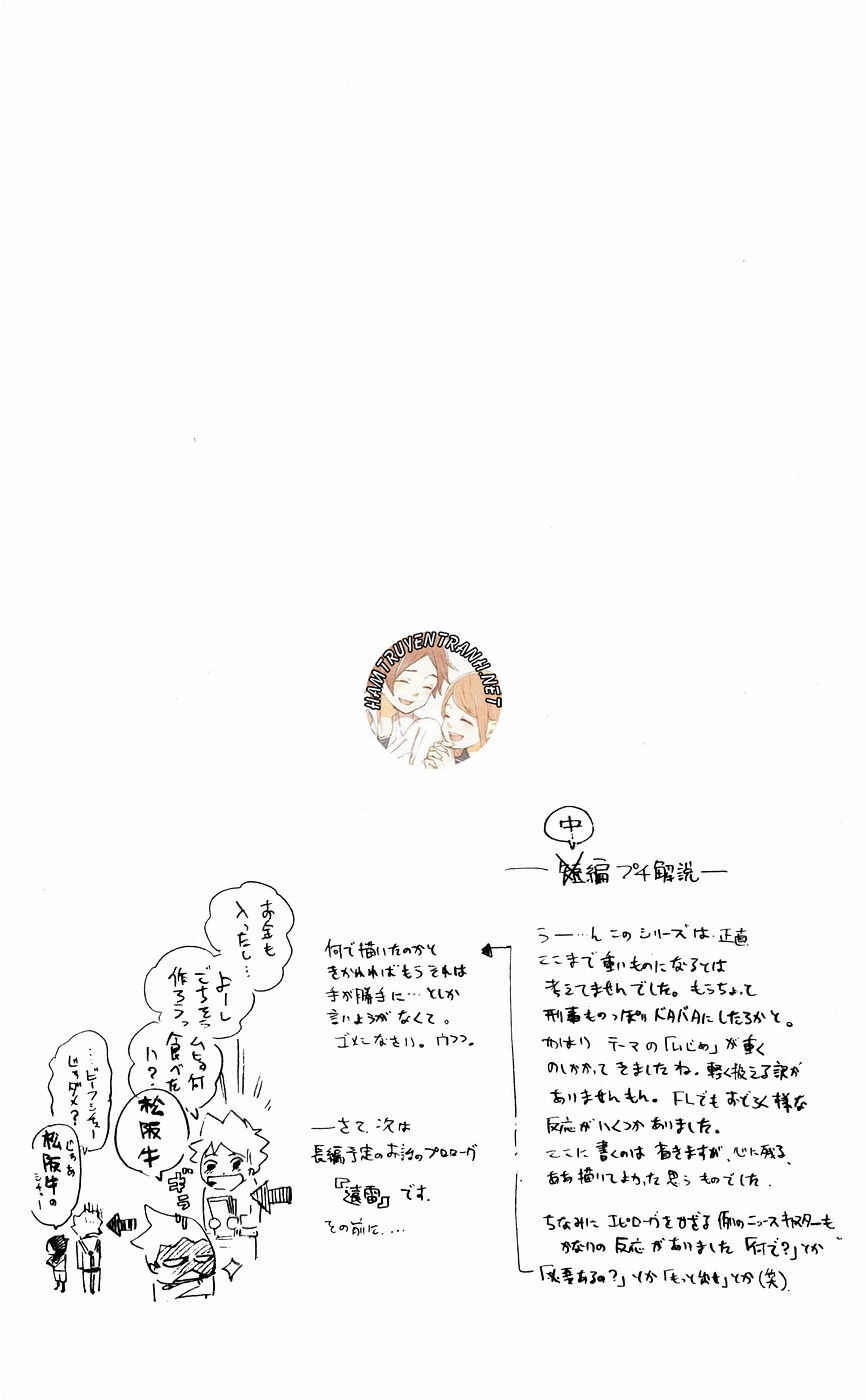 HAMTRUYENTRANH.NET
中
編 プチ解説
うー…ん このシリーズは 正直
ここまで重いものになるとは
考えてませんでした。もうちょっと
刑事ものっぽいドタバタにしたろかと。
やはり テーマの「いじめ」が重く
のしかかって きましたね。軽く扱える訳が
ありませんもん。FLでもおどろく様な
反応がいくつかありました。
ここに書くのは 省きますが、心に残る、
ああ描いてよかったと思うものでした。
ちなみに エピローグをかざる 例のニュースキャスターも
かなりの反応がありました「何で?」とか
「必要あるの?」とか「もっと出せ」とか(笑)
何で描いたのかと
きかれればもうそれは
手が勝手に…としか
言いようがなくて。
ゴメンなさい。ウフフ。
―さて、次は
長編予定のお話のプロローグ
『遠雷』です。
その前に…
お金も
入ったし…
よーし
ごちそう
作ろうっ
ムヒョ何
食べた
い?
松阪牛
ギラッ
…ビーフシチュー
じゃダメ?
じゃあ
松阪牛の
シチュー